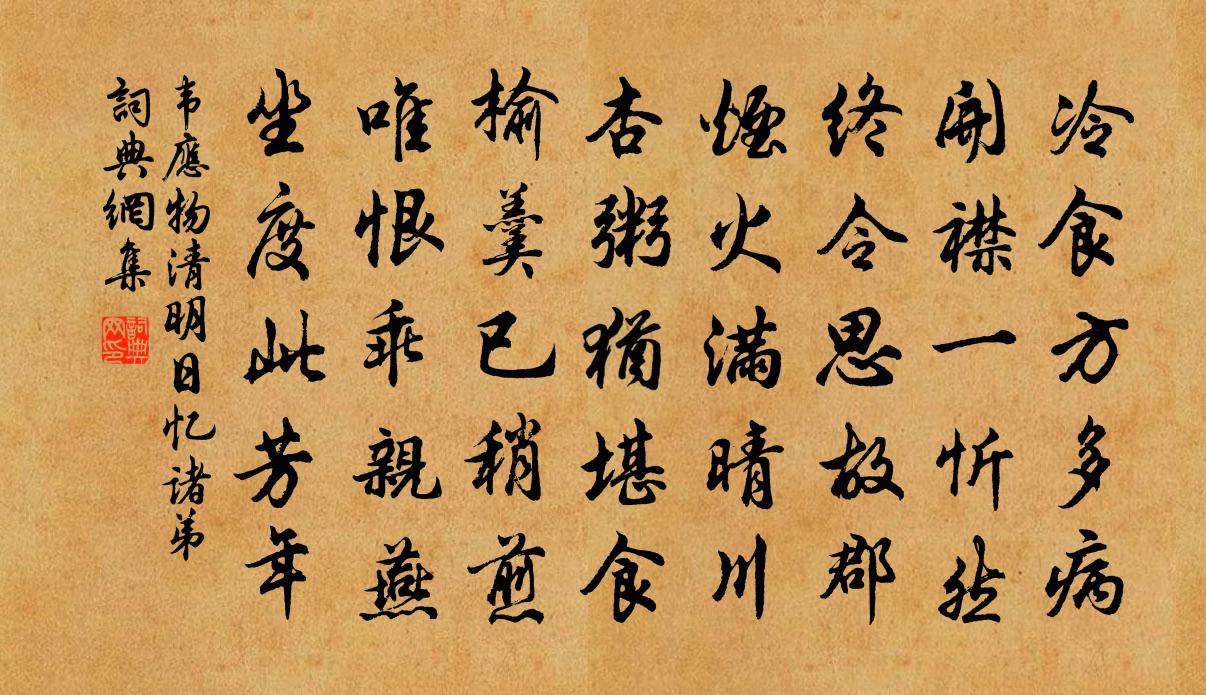 冷食方多病
開襟一忻然
終令思故郡
煙火滿晴川
杏粥猶堪食
榆羹已稍煎
唯恨乖親燕
坐度此芳年
韦應物清明日忆诸弟
詞典網集
詞典网印